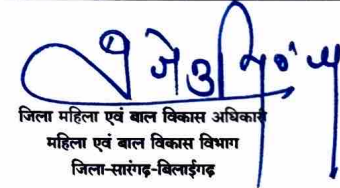 जिला महिला एवं बाल विकास अधिकारी
महिला एवं बाल विकास विभाग
जिला-सारंगढ़-बिलाईगढ़